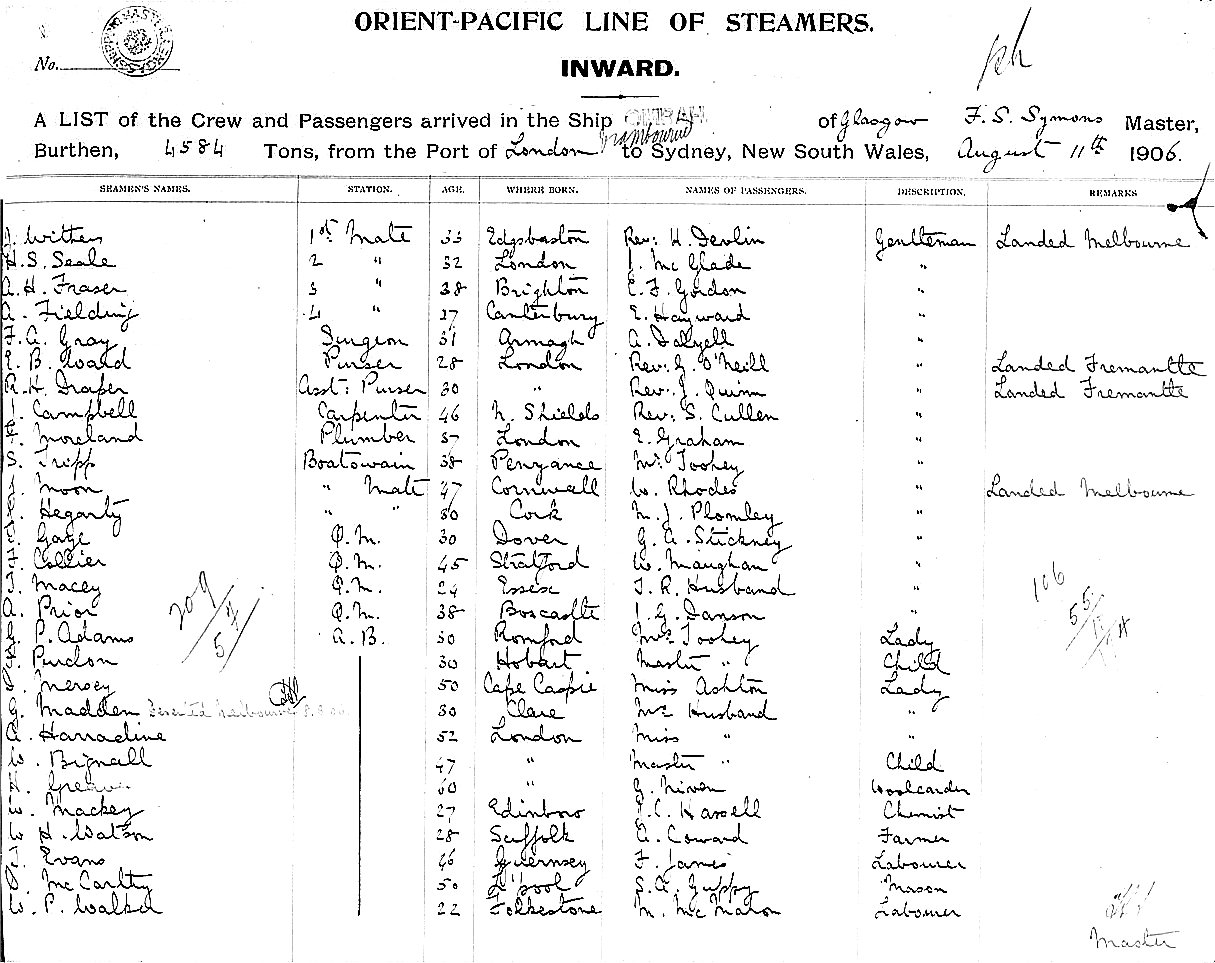 ORIENT-PACIFIC LINE OF STEAMERS.
No.
INWARD.
A LIST of the Crew and Passengers arrived in the Ship OMRAH of Glasgow F. S. Symons Master,
Burthen, 4584 Tons, from the Port of London to Sydney, New South Wales, August 11th 1906.
SEAMEN'S NAMES. STATION. AGE. WHERE BORN. NAMES OF PASSENGERS. DESCRIPTION. REMARKS
J. Witten 1st Mate 33 Edgsbaston Rev: H. Devlin Gentleman Landed Melbourne
H.S. Seale 2 " 32 London J. Mc Glade "
A.H. Fraser 3 " 28 Brighton E. F. Gordon "
A. Fielding 4 " 27 Canterbury E. Hayward "
F.A. Gray Surgeon 31 Armagh A. Dalyell "
E. B. Ward Purser 28 London Rev: G. O'Neill " Landed Fremantle
R.H. Draper Asst: Purser 30 " Rev: J. Quinn " Landed Fremantle
J. Campbell Carpenter 46 N. Shields Rev: S. Cullen "
Moreland Plumber 37 London E. Graham "
S. Tripp Boatswain 38 Penzance Mr. Toohey "
Moon " Mate 47 Cornwall W. Rhodes " Landed Melbourne
Hegarty " " 30 Cork N. J. Plomley "
Gaye Q.M. 30 Dover G. A. Stickney "
Collier Q.M. 45 Stratford W. Maughan "
J. Macey Q.M. 24 Essex T. R. Husband "
A. Prior Q.M. 38 Boscastle J. G. Danson "
P. Adams A.B. 30 Romford Mrs Toohey Lady
Purdon 30 Hobart Master " Child
Mersey 50 Cape Caspie Miss Ashton Lady
G. Madden Deserted Melbourne 30 Clare Mrs Husband "
A. Harradine 52 London Miss " "
W. Bignall 47 " Master " Child
H. 30 " G. Niven Woolcarder
W. Mackey 27 Edinboro C. Hassell Chemist
W H. Watson 28 Suffolk A. Coward Farmer
J. Evans 46 Guernsey F. James Labourer
D. Mc Carthy 50 L'pool S.A. Guppy Mason
W. P. Walker 22 Folkestone M. Mc Mahon Labourer
209
106
55
Master